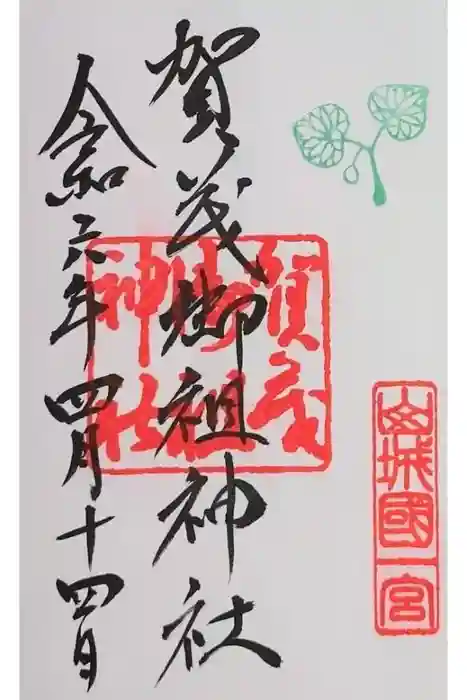 山城國一宮
賀茂御祖神社
賀茂御祖神社
令和六年四月十四日